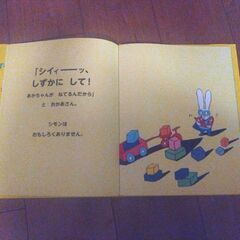 「シイィーーッ、
しずかに して！
あかちゃんが ねてるんだから」
と おかあさん。
シモンは
おもしろくありません。